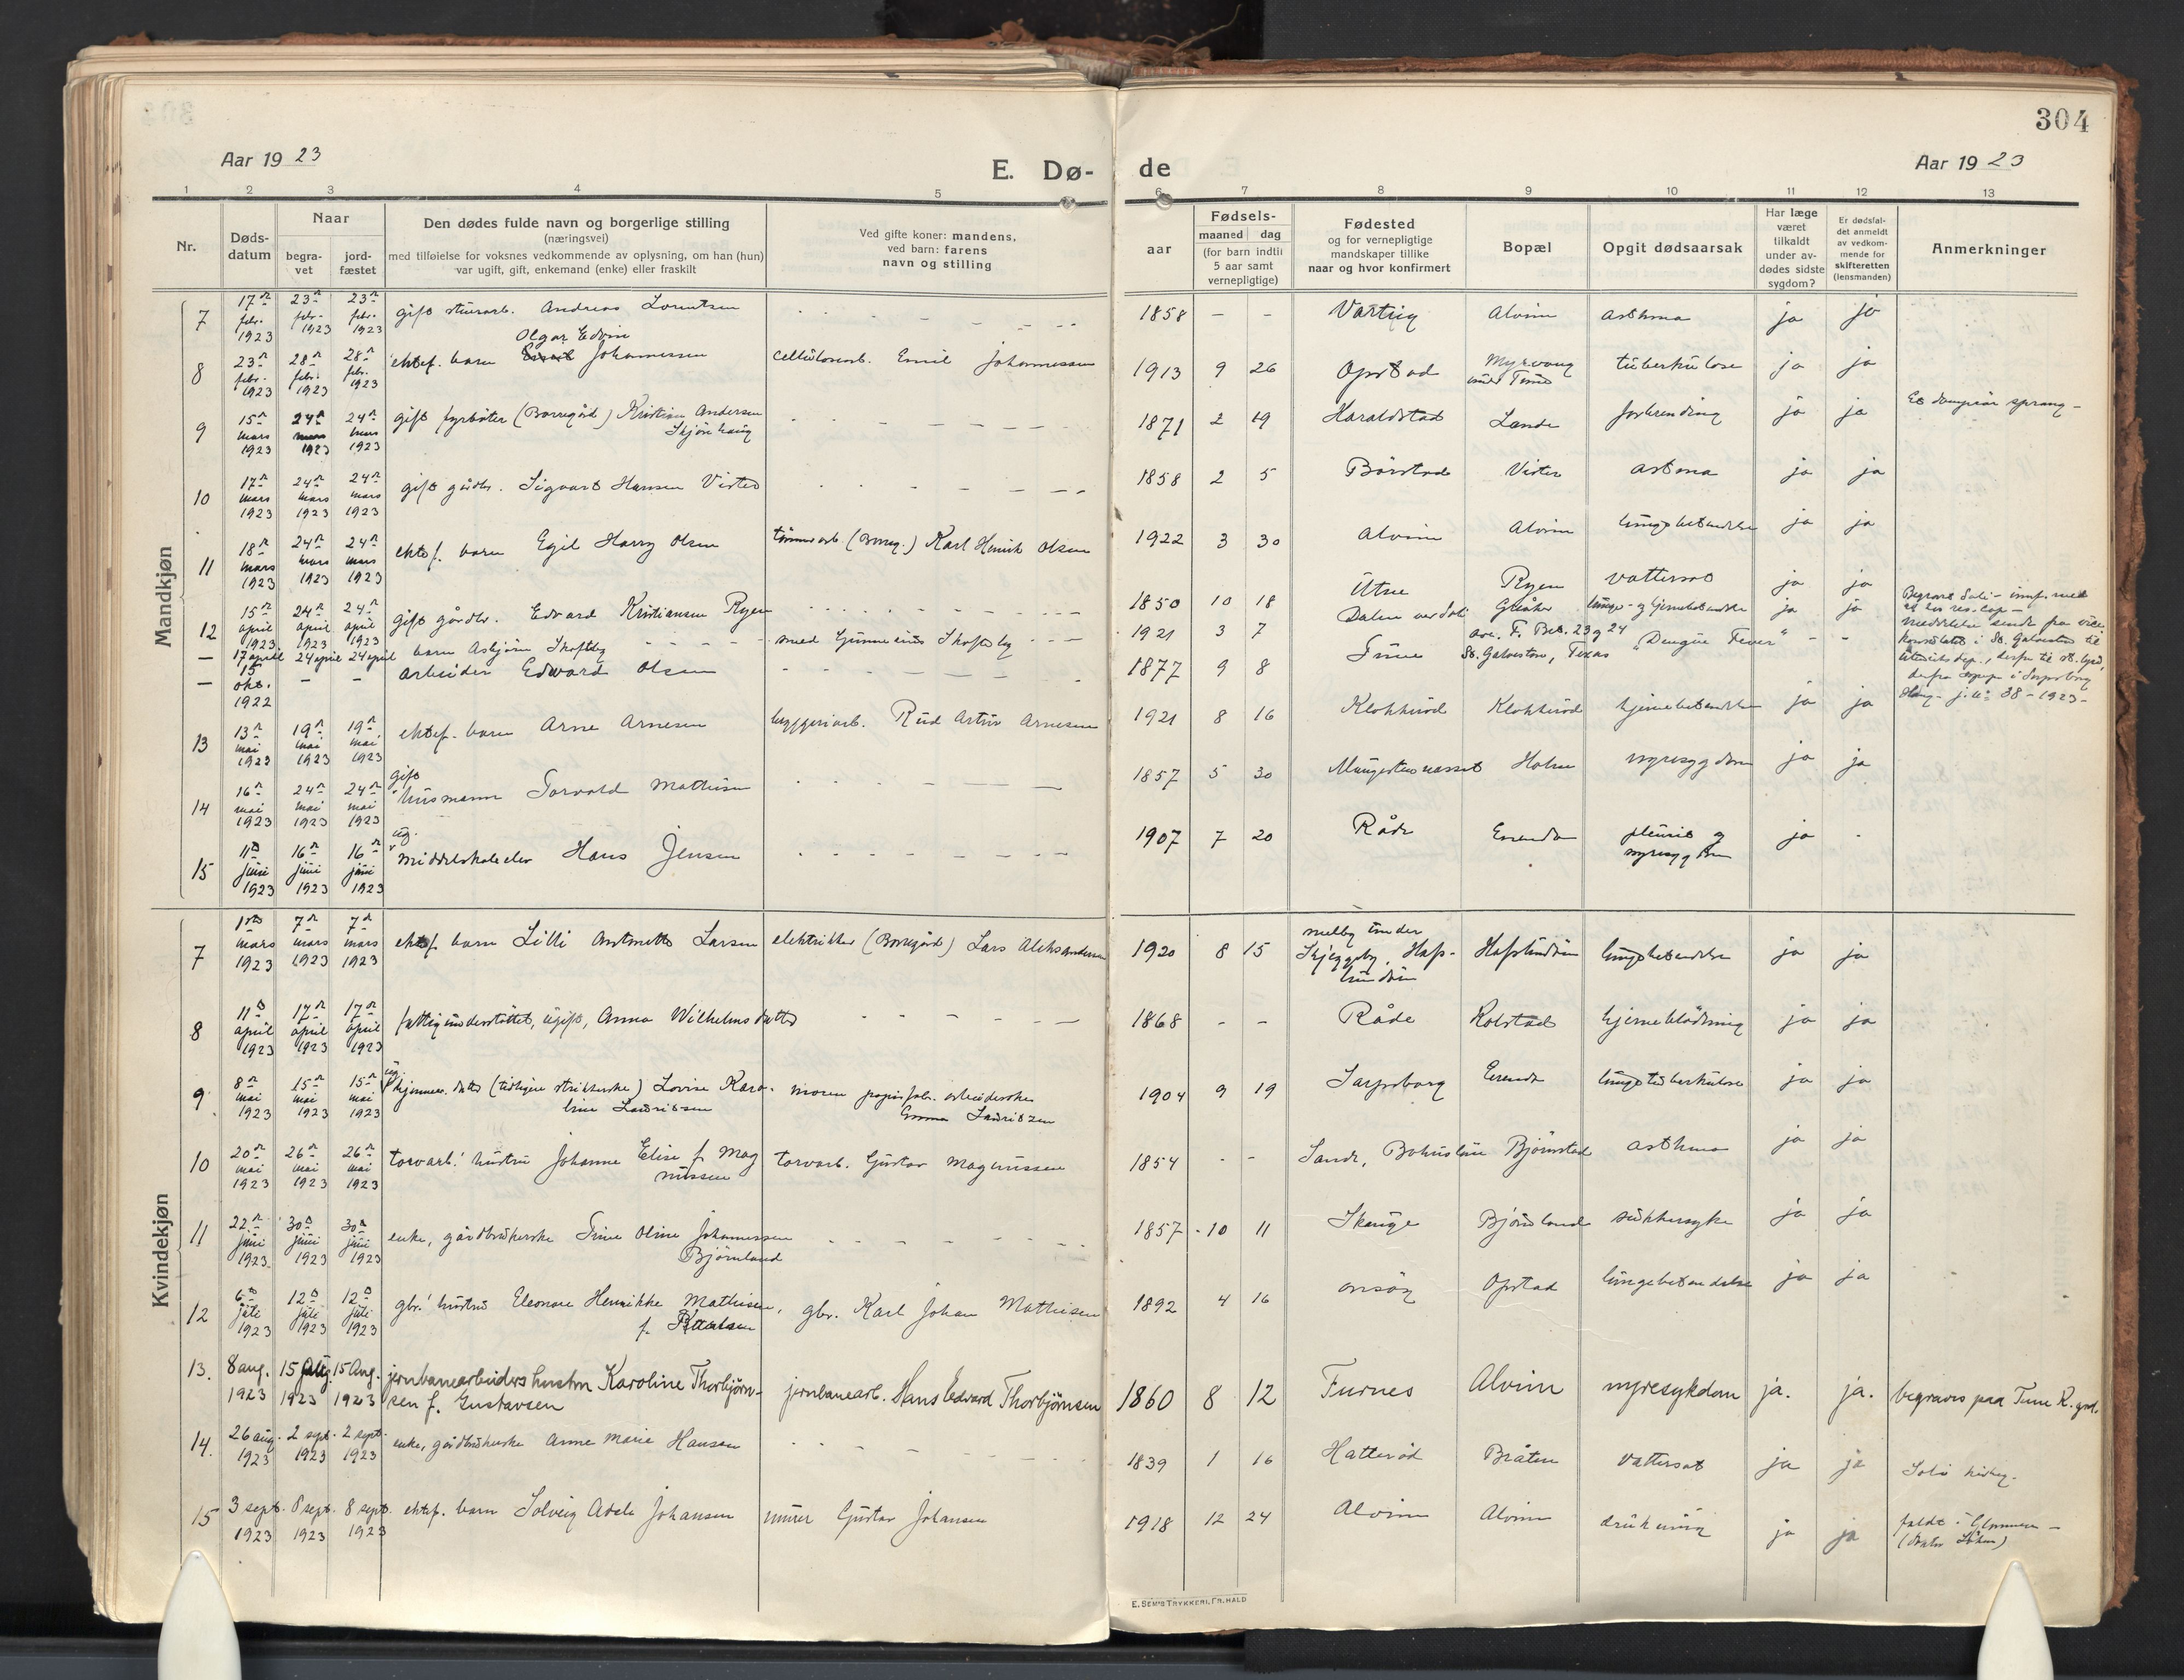 304
Aar 1923
E. Dø-
de
Aar 1923
1 2 3 4 5 6 7 8 9 10 11 12 13
Nr.
Døds-
datum
Naar
begra-
vet
jord-
fæstet
Den dødes fulde navn og borgerlige stilling
(næringsvei)
med tilføielse for voksnes vedkommende av oplysning, om han (hun)
var ugift, gift, enkemand (enke) eller fraskilt
Ved gifte koner: mandens,
ved barn: farens
navn og stilling
aar
Fødsels-
maaned dag
(for barn indtil
5 aar samt
vernepligtige)
Fødested
og for vernepligtige
mandskaper tillike
naar og hvor konfirmert
Bopæl
Opgit dødsaarsak
Har læge
været
tilkaldt
under av-
dødes sidste
sygdom?
Er dødsfal-
det anmeldt
av vedkom-
mende for
skifteretten
(lensmanden)
Anmerkninger
Mandkjøn
7 17de febr. 1923 23de febr. 1923 23de febr. 1923 gift Andreas Lorentsen - 1858 - - Varteig Alvim Asthma ja ja
8 23de febr. 1923 28de febr. 1923 28de febr. 1923 ektef. barn Olgar Edvin Johannessen cellulosearb. Emil Johannessen 1913 9 26 Opstad Myrvang under Tune tuberkulose ja ja
9 15de mars 1923 24de mars 1923 24de mars 1923 gift fyrbøter (Borregård) Kristian Andersen Skjørshaug - 1871 2 19 Haraldstad Lande forbrending ja ja Et damprør sprang -
10 17de mars 1923 24de mars 1923 24de mars 1923 gift gårdbr. Sigvart Hansen Vister - 1858 2 5 Bårstad Vister astma ja ja
11 18de mars 1923 24de mars 1923 24de mars 1923 ektef. barn Egil Harry Olsen tømmerarb. (Borreg.) Karl Henrik Olsen 1922 3 30 Alvim Alvim lungebetændelse ja ja
12 15de april 1923 24de april 1923 24de april 1923 gift gårdbr. Edvard Kristiansen Ryen - 1850 10 18 Utne Ryen vattersot ja ja
— 17 april 24 april 24 april barn Asbjørn Skofteby - 1921 3 7 Dalen ved Soli Greåker lunge- og hjernebetændelse ja ja Begravet Soli -
— 15 okt. 1922 - - arbeider Edward Olsen - 1877 9 8 Tune Ave. F. Bet. 23 og 24 St. Galveston, Texas "Dengue Fever" - - meddelelse sendt fra vice-
konsulatet i St. Galveston til
j. nr. 38 - 1923 -
13 13de mai 1923 19de mai 1923 19de mai 1923 ektef. barn Arne Arnesen byggeriarb. Rud Artur Arnesen 1921 8 16 Klokkerød Klokkerød hjernebetændelse ja ja
14 16de mai 1923 24de mai 1923 24de mai 1923 gift husmann Torvald Mathisen - 1857 5 30 Holm nyresygdom ja ja
15 11te juni 1923 16de juni 1923 16de juni 1923 ug. middelskoleelev Hans Jensen - 1907 7 20 Råde Enenda pleurit og nyresygdom ja -
Kvindekjøn
7 1ste mars 1923 7de mars 1923 7de mars 1923 ektef. barn Lilli Antonette Larsen elektriker (Borregård) Lars Aleksandersen 1920 8 15 Melby under Skjeggeby, Hafslundsøen Hafslundsøen lungebetændelse ja ja
8 11te april 1923 17de april 1923 17de april 1923 fattigunderstøttet, ugift, Anna Wilhelmsdatter - 1868 - - Råde Rolstad hjerneblødning ja ja
9 8de mai 1923 15de mai 1923 15de mai 1923 ug. hjemmev. datter (tidligere strikkerske) Lovise Karoline Lauritzen moren papirfabr. arbeiderske Emma Lauritzen 1904 9 19 Sarpsborg Enenda lungetuberkulose ja ja
10 20de mai 1923 26de mai 1923 26de mai 1923 torvarb.' hustru Johanne Elise f. Magnussen torvarb. Gustav Magnussen 1854 - - Sande, Bohuslän Bjørnstad asthma ja ja
11 22de juni 1923 30te juni 1923 30te juni 1923 enke, gårdbrukerske Trine Oline Johannessen Bjørnland - 1857 10 11 Skauge Bjørnland sukkersyke ja ja
12 6te juli 1923 12te juli 1923 12te juli 1923 gbr.' hustru Eleonore Henrikke Mathisen, f. Pettersen gbr. Karl Johan Mathisen 1892 4 16 Onsøy Opstad lungebetændelse ja ja
13. 8 aug. 1923 15 Aug. 1923 15 Aug. 1923 jernbanearbeiders hustru Karoline Thorbjørnsen f. Gustavsen jernbanearb. Hans Edvard Thorbjørnsen 1860 8 12 Furnes Alvim nyresykdom ja. ja. begraves paa Tune K. grd.
14. 26 aug. 1923 2 sept. 1923 2 sept. 1923 enke, gårdbrukerske Anne Marie Hansen - 1839 1 16 Hatterød Bråten vattersot ja ja Soli kirkeg.
15 3 sept. 1923 8 sept. 1923 8 sept. 1923 ektef. barn Solveig Adele Johansen murer Gustav Johansen 1918 12 24 Alvim Alvim drukning ja ja faldt i Glommen -
E. SEM'S TRYKKERI, FR. HALD